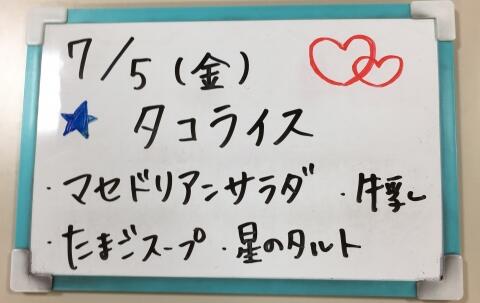 7/5(金)
タコライス
・マセドリアンサラダ ・牛乳
・たまごスープ ・星のタルト